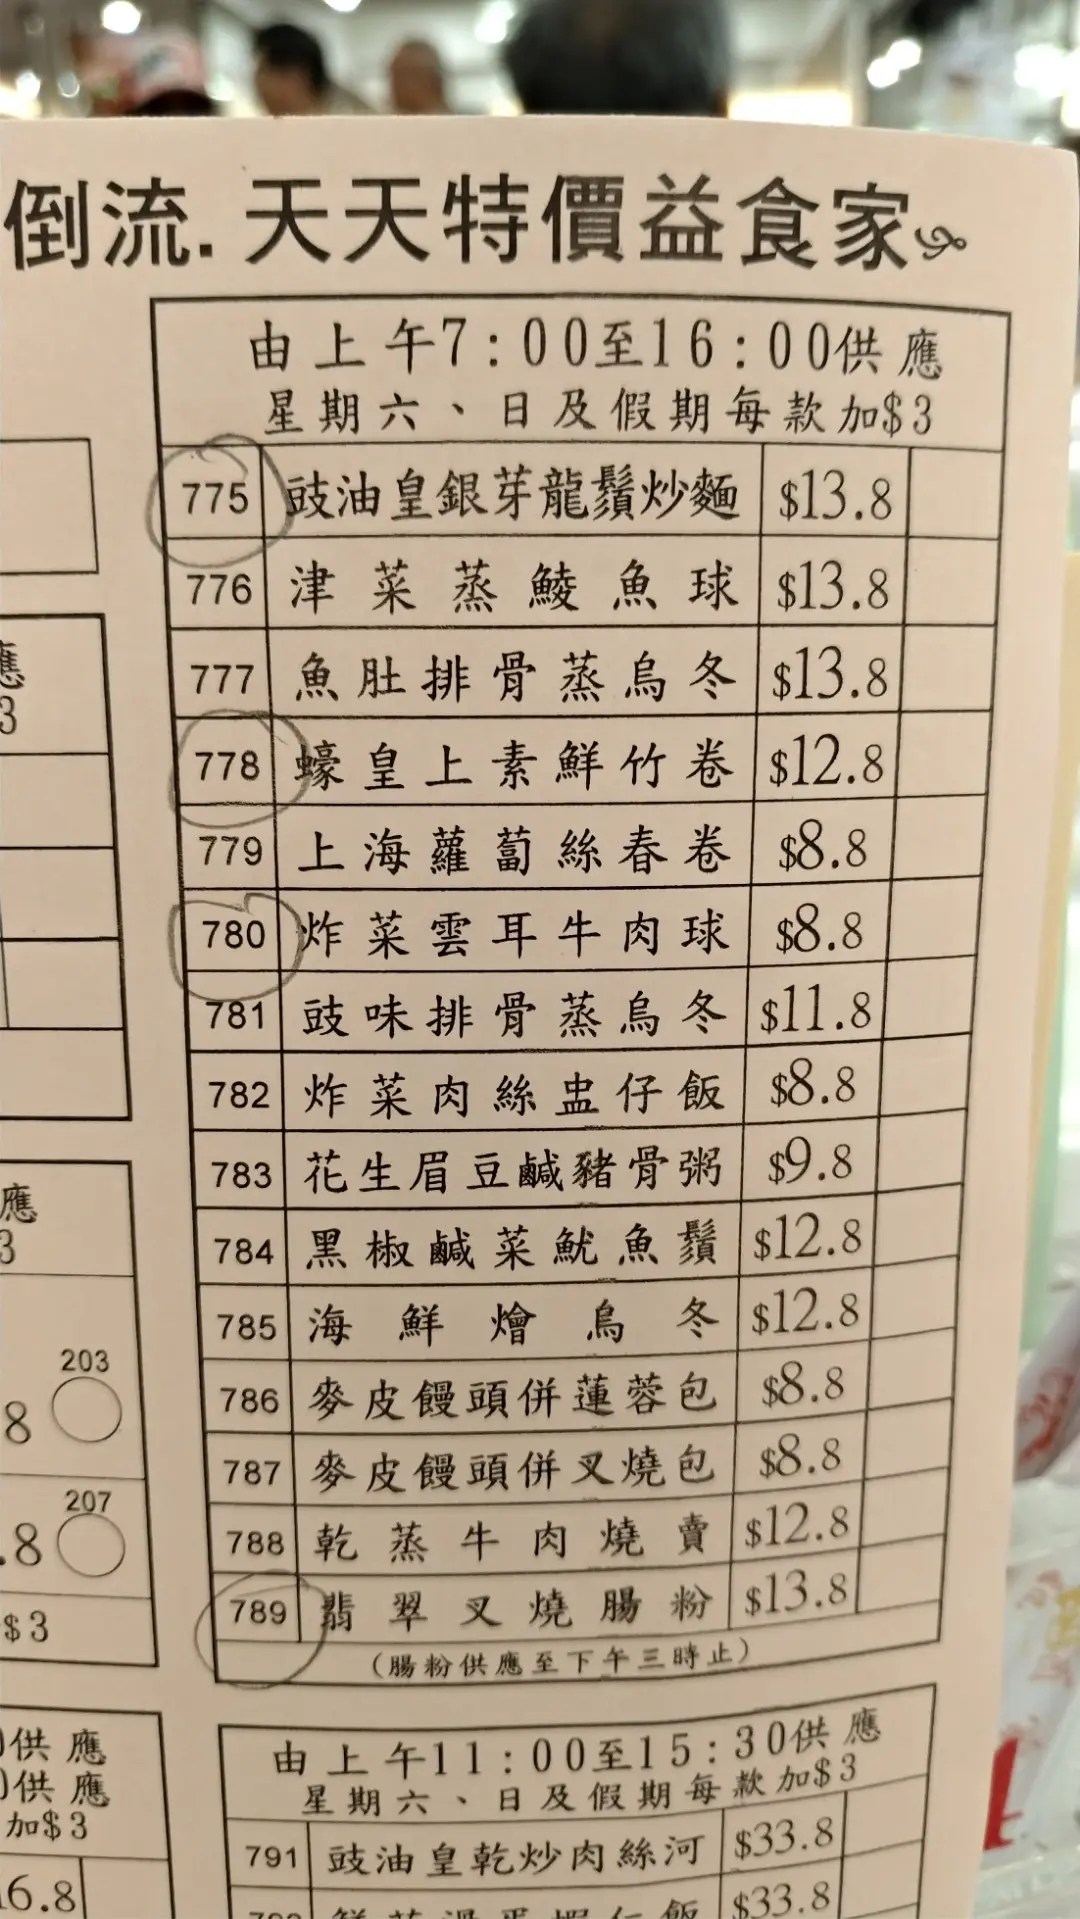 倒流.天天特價益食家
由上午7:00至16:00供應
星期六、日及假期每款加$3
775 豉油皇銀芽龍鬚炒麵 $13.8
776 津菜蒸鯪魚球 $13.8
777 魚肚排骨蒸烏冬 $13.8
778 蠔皇上素鮮竹卷 $12.8
779 上海蘿蔔絲春卷 $8.8
780 炸菜雲耳牛肉球 $8.8
781 豉味排骨蒸烏冬 $11.8
782 炸菜肉絲盅仔飯 $8.8
783 花生眉豆鹹豬骨粥 $9.8
784 黑椒鹹菜魷魚鬚 $12.8
785 海鮮燴烏冬 $12.8
786 麥皮饅頭併蓮蓉包 $8.8
787 麥皮饅頭併叉燒包 $8.8
788 乾蒸牛肉燒賣 $12.8
789 翡翠叉燒腸粉 $13.8
(腸粉供應至下午三時止)
由上午11:00至15:30供應
星期六、日及假期每款加$3
791 豉油皇乾炒肉絲河 $33.8
$33.8
應
3
應
3
203
8
207
.8
$3
供應
供應
加$3
6.8